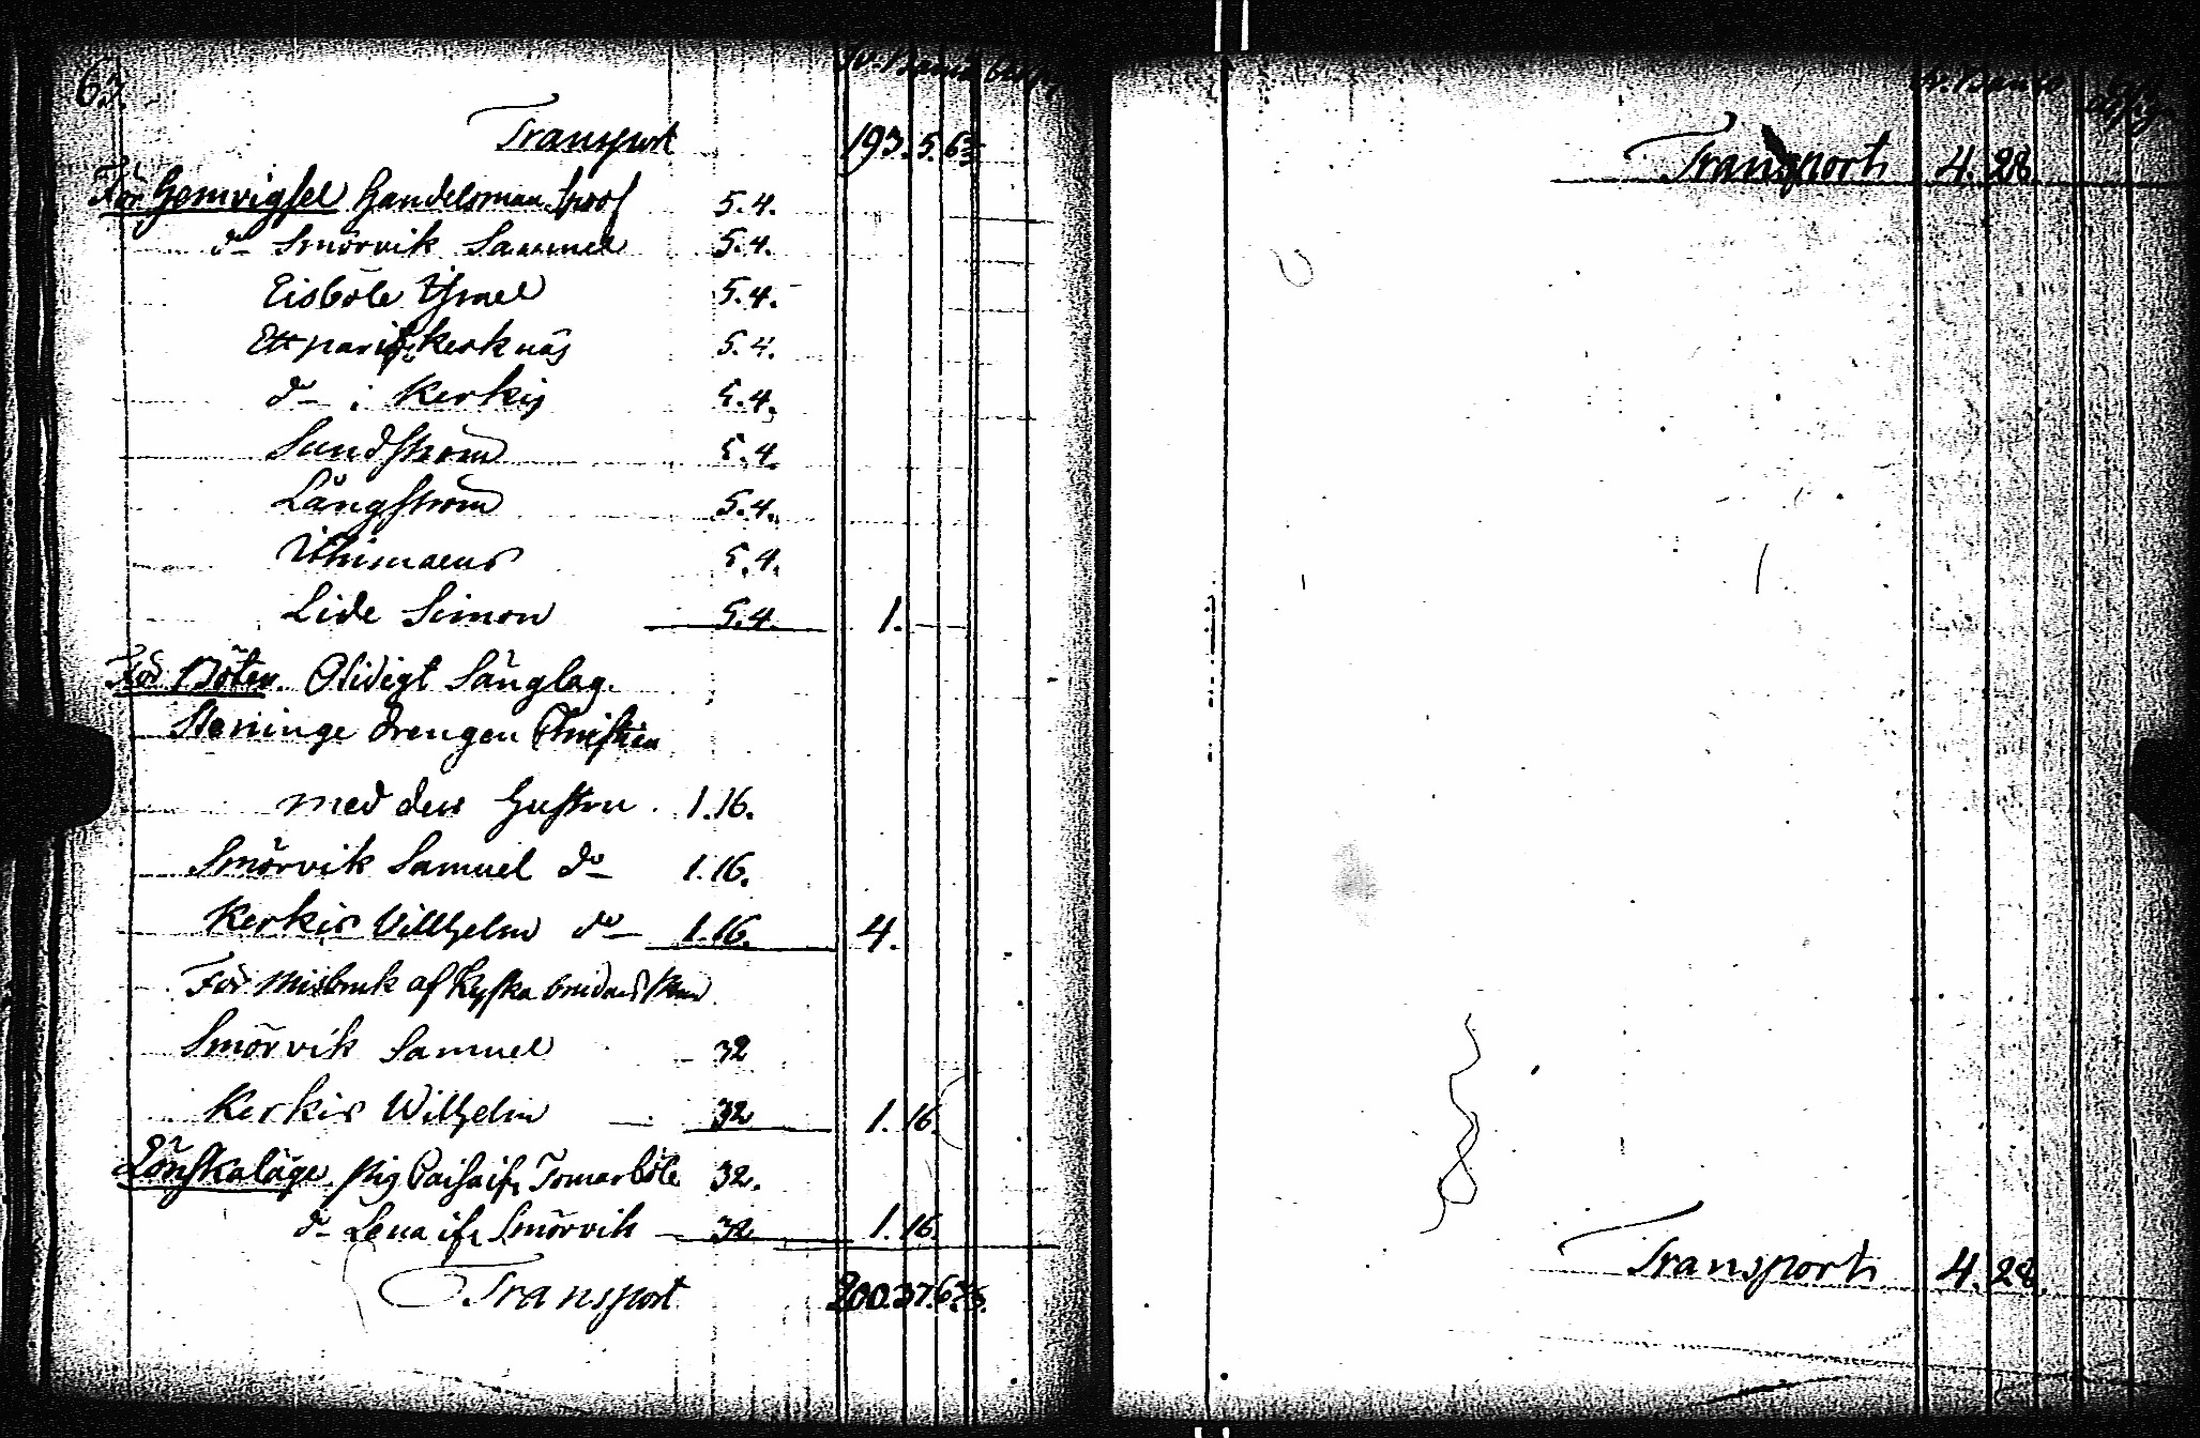 Transport 193. 5. 6 3/5
För Hemvigsel Handelsman 5.4.
do Smörvik Samuel 5.4.
Eisböle Israel 5.4.
Ett par ifr Kerknäs 5.4.
do i Kerkis 5.4.
Sundström 5.4.
Långström 5.4.
Ithimaeus 5.4.
Lide Simon 5.4. 1. —
För Böter. Otidigt Sänglag.
Staninge drengen Christian
med dess Hustru. 1.16.
Smörvik Samuel do 1.16.
Kerkis Villhelm do 1.16. 4.
För misbruk af Kyska
Smörvik Samuel 32
Kerkis Wilhelm 32 1. 16.
Lönskaläge. Pig Caisa ifr Tomarböle 32.
do Lena ifr Smörvik 32 1. 16.
Transport 200. 37. 6
Transport 4. 28
Transport 4. 28.